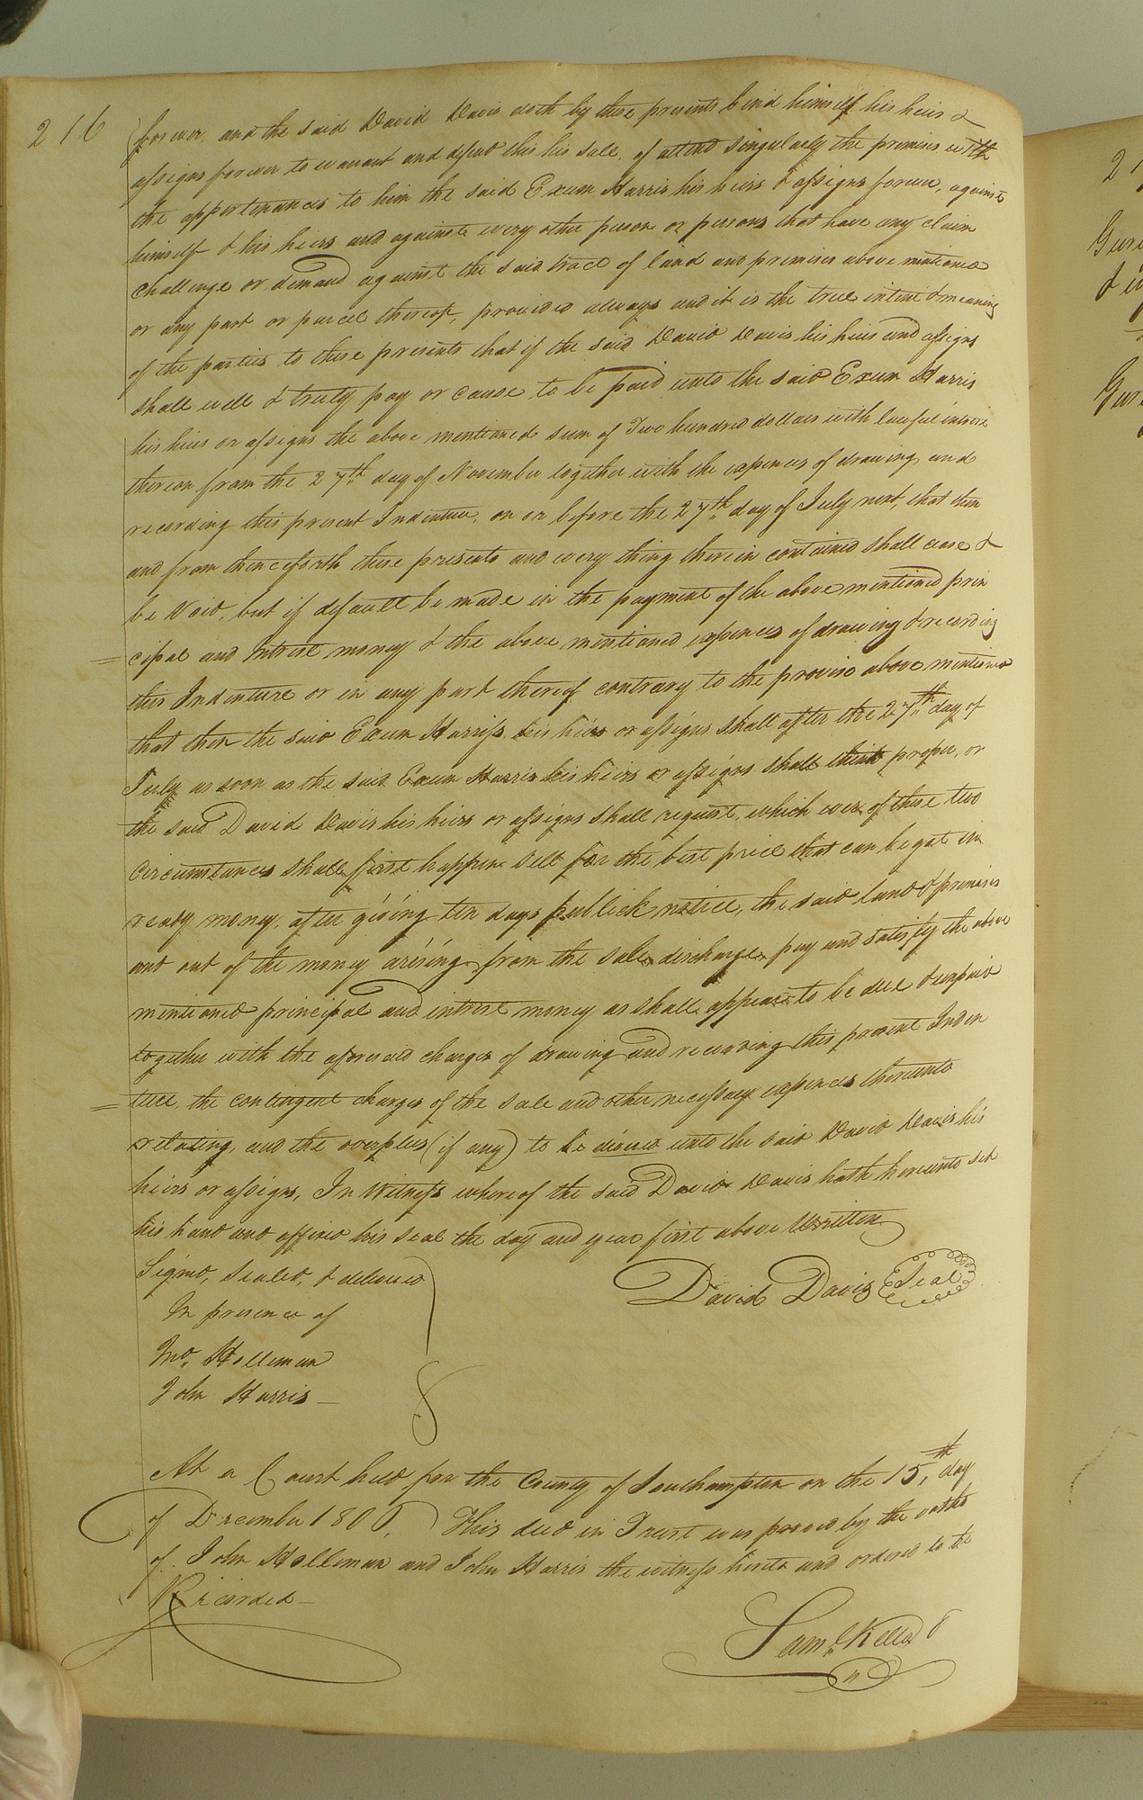 216
forever, and the said David Davis doth by these presents bind himself his heirs &
assigns forever to warrant and defend this his sale, of all and singularly the premises with
the appertenances to him the said Exum Harris his heirs & assigns forever, against
himself & his heirs and against every other person or persons that have any claim
challenge or demand against the said tract of land and premises above mentioned
or any part or parcel thereof, provided always and it is the true intent & meaning
of the parties to these presents that if the said David Davis his heirs and assigns
shall well & truly pay or cause to be paid unto the said Exum Harris
his heirs or assigns the above mentioned sum of Two hundred dollars with lawful intrest
thereon from the 27th day of November together with the expences of drawing and
recording this present Indenture, on or before the 27th day of July next, that then
and from thenceforth these presents and every thing therein contained shall cease &
be Void, but if default be made in the payment of the above mentioned prin
cipal and Intrest money & the above mentioned expences of drawing & recording
this Indenture or in any part thereof contrary to the proviso above mentioned
that then the said Exum Harriss his heirs or assigns shall after the 27th day of
July as soon as the said Exum Harris his heirs or assigns shall think proper, or
the said David Davis his heirs or assigns shall request, which ever of these two
circumstances shall first happen Sell for the best price that can be got in
ready money, after giving ten days publick notice, the said land & premises
and out of the money arising from the sale discharge pay and satisfy the above
mentioned principal and intrest money as shall appear to be due & unpaid
together with the aforesaid charges of drawing and recording this present Inden
ture, the contingent charges of the sale and other necessary expences thereunto
relating, and the overplus (if any) to be divided unto the said David Davis his
heirs or assigns, In Witness whereof the said David Davis hath hereunto set
his hand and affixed his seal the day and year first above Written
Signed, Sealed, & delivered
David Davis Seal
In presence of
Jno. Holleman
John Harris
At a Court held for the County of Southampton on the 15th day
of December 1800, This deed in Trust was proved by the oaths
of John Holleman and John Harris the witness hereto and ordered to be
Recorded
Saml Kello